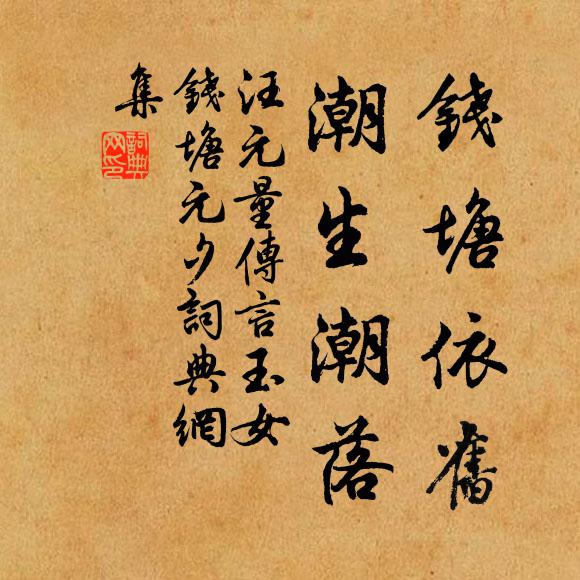 錢塘依舊
潮生潮落
汪元量傳言玉女
錢塘元夕詞典網
集
詞典
网印